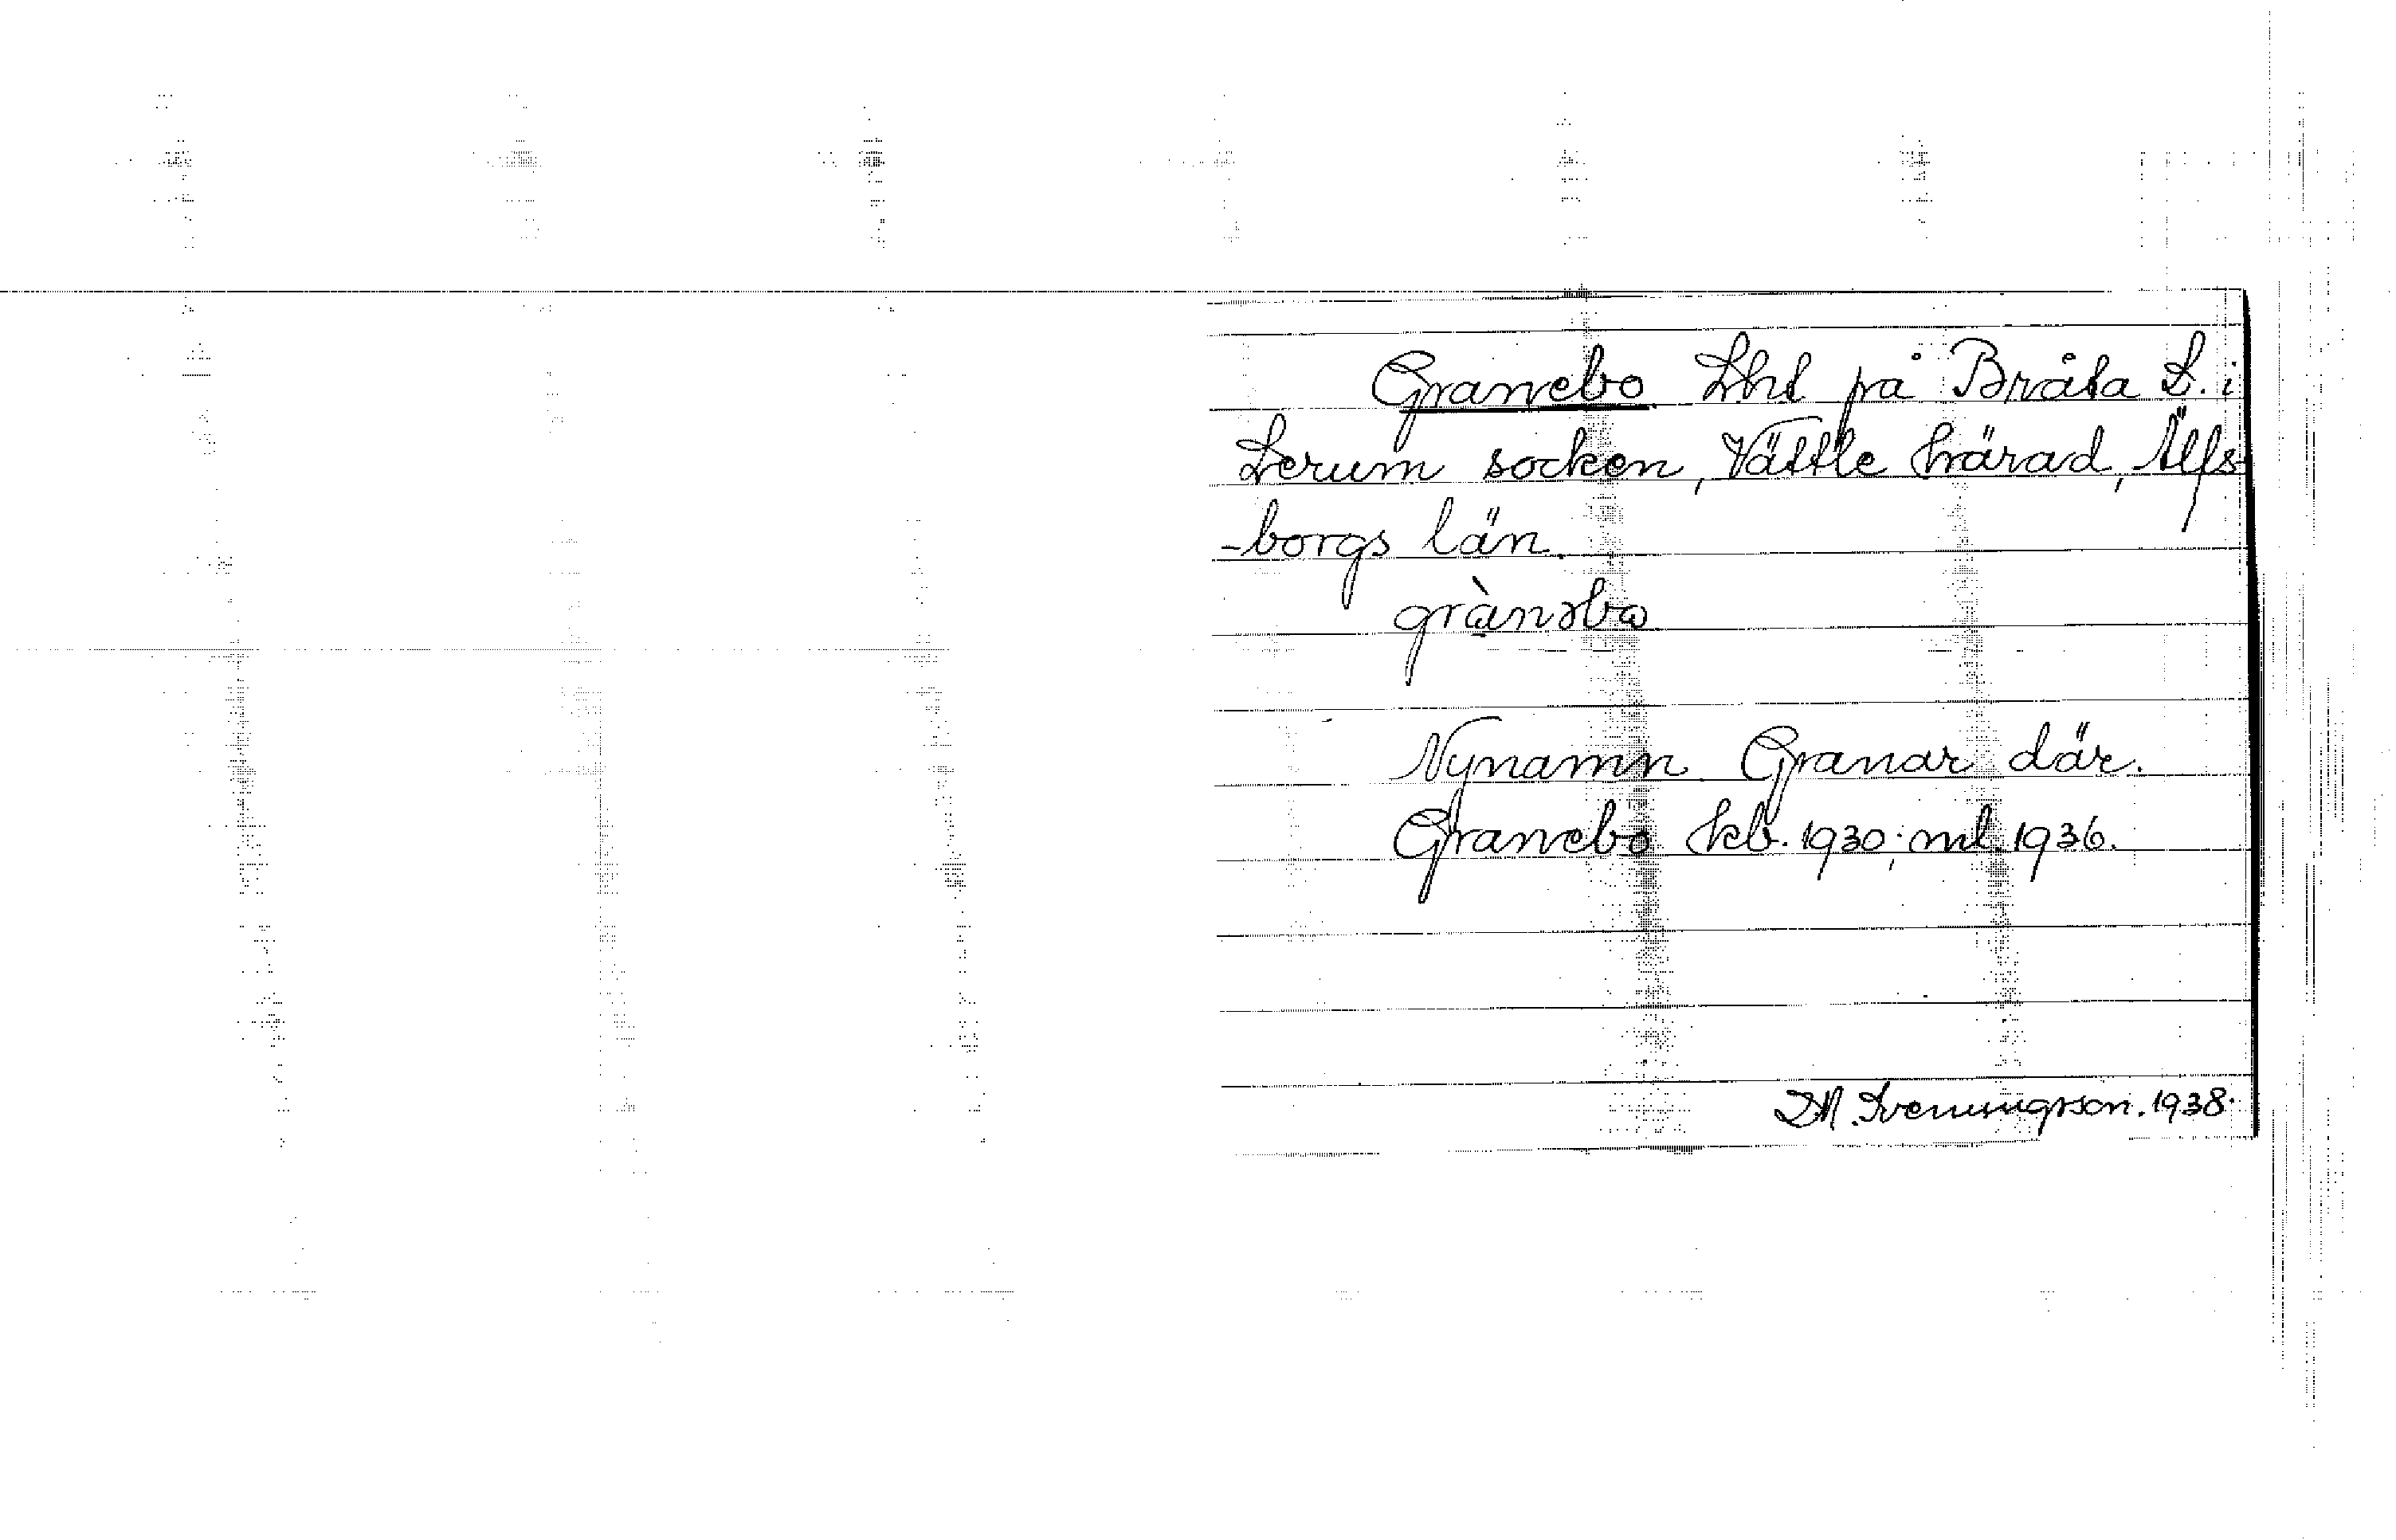 Granebo Lht på Bråta L. i
Lerum socken, Vättle härad, Älfs-
-borgs län.
grànəbo
Nynamn. Granar där.
Granebo kb. 1930; ml. 1936.
Sveningsson. 1938.